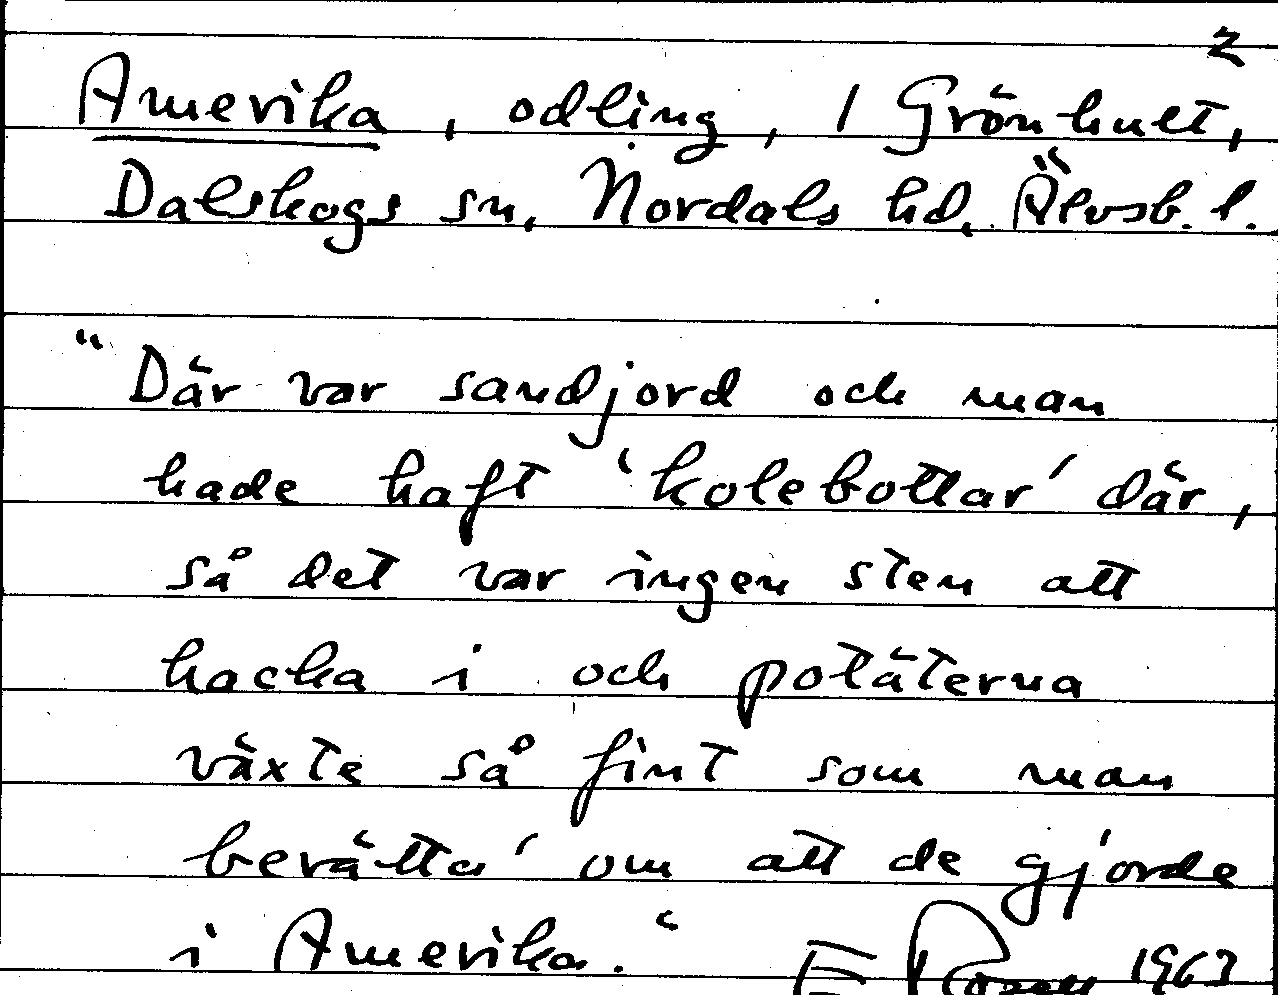 2
Amerika, odling, 1 Grönhult,
Dalskogs sn, Nordals hd, Älvsb. l.
"Där var sandjord och man
hade haft 'kolebottar' där,
så det var ingen sten att
hacka i och potäterna
växte så fint som man
berätta' om att de gjorde
i Amerika."
E Rosen 1963